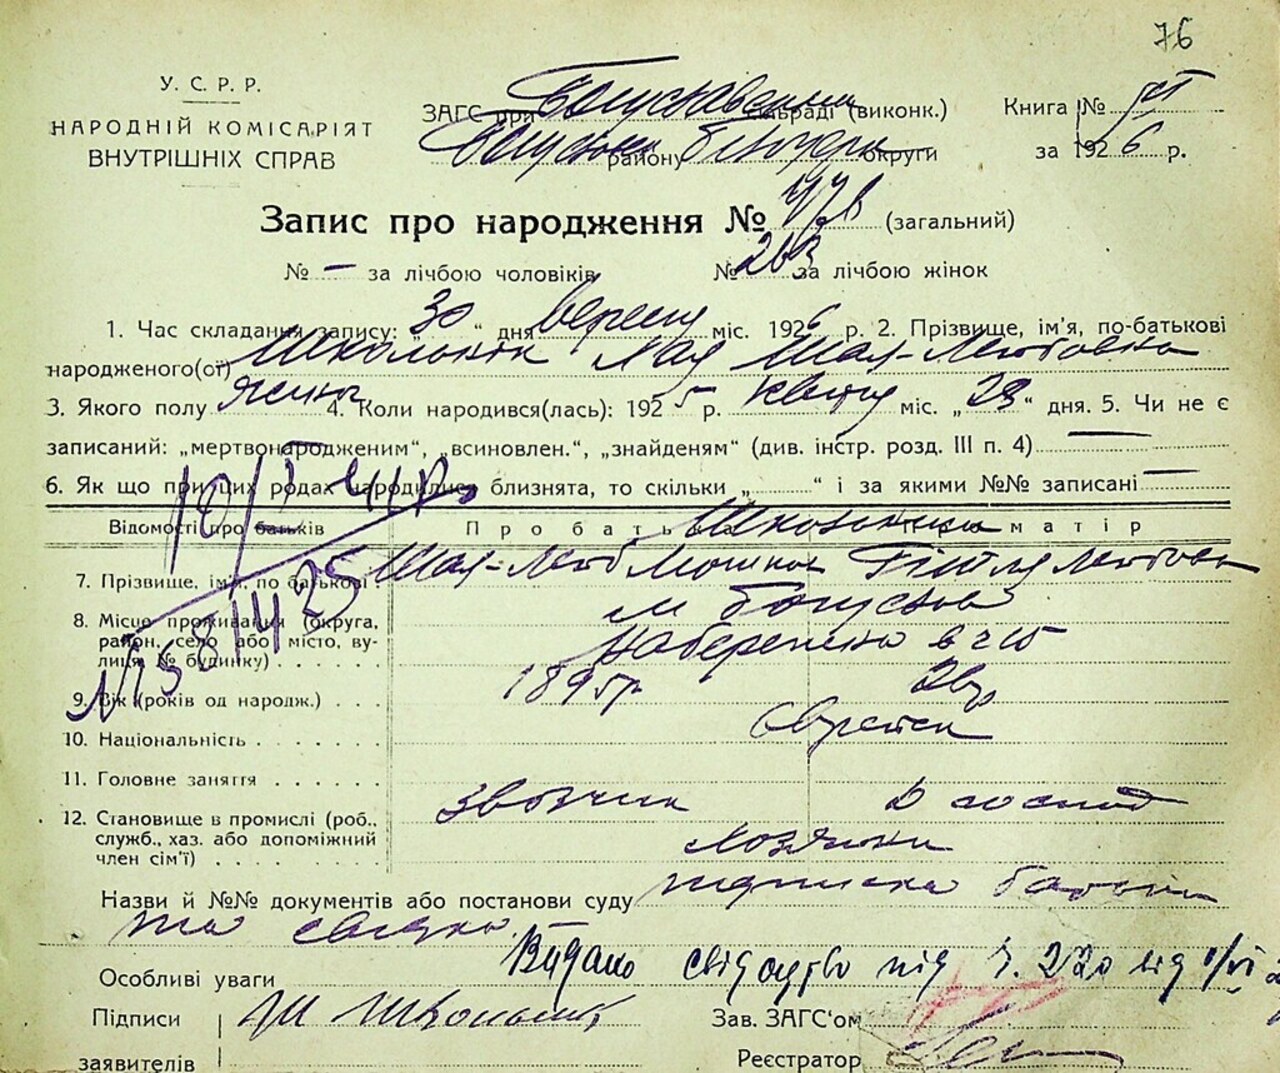 76
У. С. Р. Р.
НАРОДНІЙ КОМІСАРІЯТ
ВНУТРІШНІХ СПРАВ
ЗАГС при Богуславський сільраді (виконк.)
району округи
Книга №
за 1926 р.
Запис про народження № (загальний)
№ — за лічбою чоловіків № 263 за лічбою жінок
1. Час складання запису: „30“ дня вересня міс. 1926 р. 2. Прізвище, ім'я, по-батькові
народженого(ої) Школьнік Хая Шая-Лейбовна
3. Якого полу жіноч 4. Коли народився(лась): 1925 р. квітня міс. „23“ дня. 5. Чи не є
записаний: „мертвонародженим“, „всиновлен.“, „знайденям“ (див. інстр. розд. III п. 4) —
6. Як що при цих родах народились близнята, то скільки „ “ і за якими №№ записані —
Відомості про батьків Про батька Про матір
Школьніки
7. Прізвище, ім'я, по батькові Шая-Лейб Мошков Лейбова
8. Місце проживання (округа, район, село або місто, вулиця, № будинку) м Богуслав
Набережна в ч 15
9. Вік (років од народж.) 1895 р.
10. Національність Єврейск
11. Головне заняття
12. Становище в промислі (роб., служб., хаз. або допоміжний член сім'ї) звозчик д господ
хозяйки
Назви й №№ документів або постанови суду підписка батьків
та свідків.
Особливі уваги Видано свідоцтво під ч. 220 від 1/VI
Підписи
заявителів
Ш Школьник
Зав. ЗАГС'ом
Реєстратор